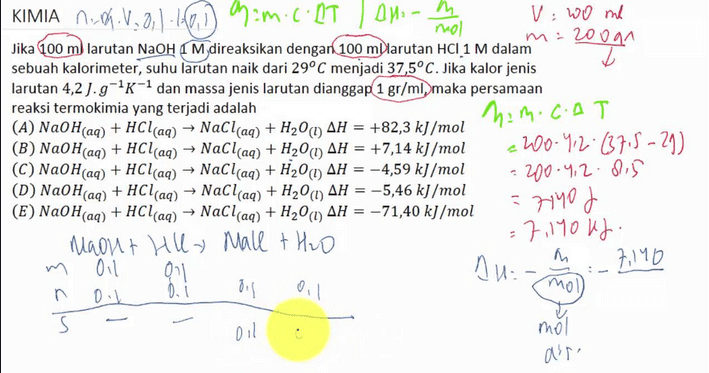 KIMIA n = M . V = 0,1 . 1 = 0,1 q = m . c . ΔT / ΔH = - q/mol
V = 200 ml
m = 200 gr
Jika 100 ml larutan NaOH 1 M direaksikan dengan 100 ml larutan HCl 1 M dalam
sebuah kalorimeter, suhu larutan naik dari 29°C menjadi 37,5°C. Jika kalor jenis
larutan 4,2 J.g⁻¹K⁻¹ dan massa jenis larutan dianggap 1 gr/ml, maka persamaan
reaksi termokimia yang terjadi adalah
(A) NaOH(aq) + HCl(aq) → NaCl(aq) + H₂O(l) ΔH = +82,3 kJ/mol
(B) NaOH(aq) + HCl(aq) → NaCl(aq) + H₂O(l) ΔH = +7,14 kJ/mol
(C) NaOH(aq) + HCl(aq) → NaCl(aq) + H₂O(l) ΔH = −4,59 kJ/mol
(D) NaOH(aq) + HCl(aq) → NaCl(aq) + H₂O(l) ΔH = −5,46 kJ/mol
(E) NaOH(aq) + HCl(aq) → NaCl(aq) + H₂O(l) ΔH = −71,40 kJ/mol
q = m . c . Δ T
= 200 . 4,2 . (37,5 - 29)
= 200 . 4,2 . 8,5
= 7140 J
= 7,140 kJ.
NaOH + HCl → NaCl + H₂O
m 0,1 0,1
r 0,1 0,1 0,1 0,1
s — — 0,1
ΔH = - q/mol = - 7,140
mol